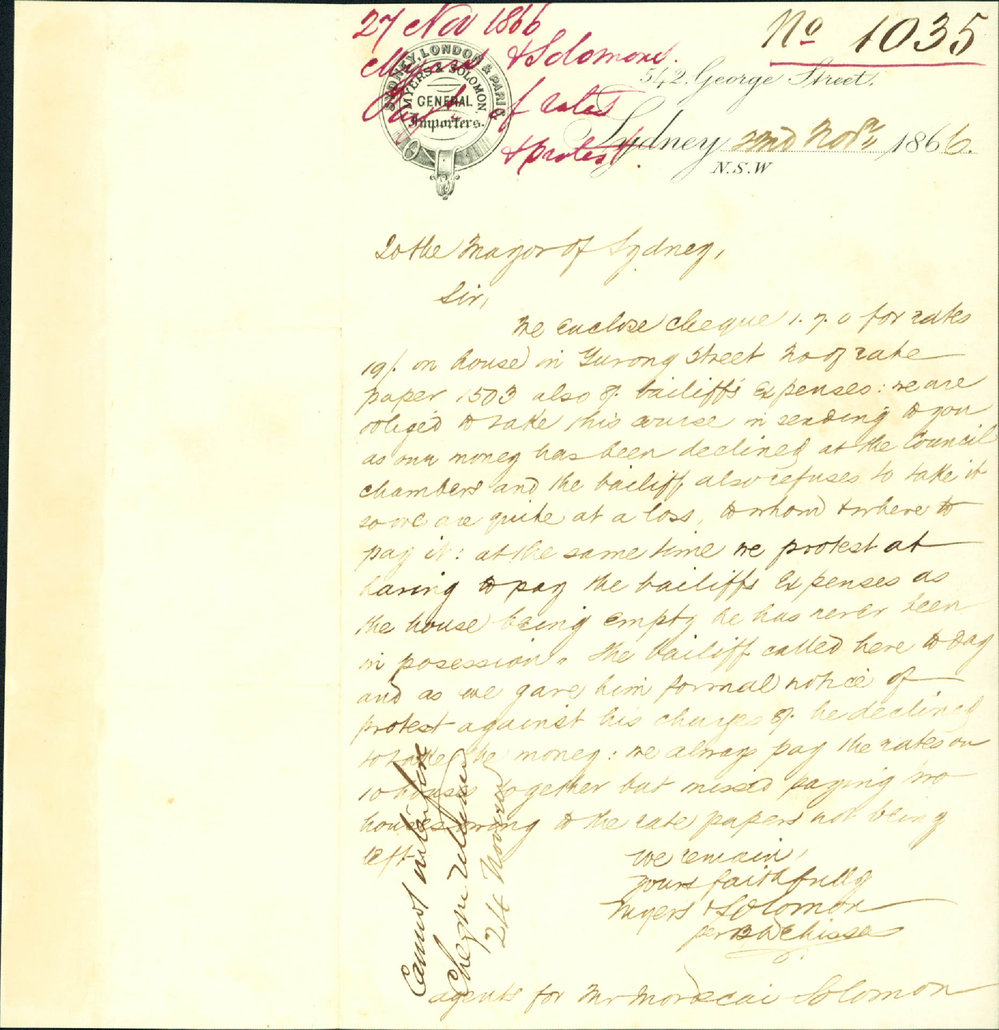 27 Nov 1866
Myers & Solomon
of rates
& protest
No 1035
SYDNEY, LONDON & PARIS
MYERS & SOLOMON
GENERAL
Importers.
542, George Street.
Sydney 22nd Novr, 1866.
N.S.W
To the Mayor of Sydney,
Sir,
We Enclose cheque 1.7.0 for rates
19/. on house in Yurong Street No of rate
paper 1503 also 8/. bailiffs Expenses: we are
obliged to take this course in sending to you
as our money has been declined at the Council
chambers and the bailiff also refuses to take it
so we are quite at a loss, to whom & where to
pay it: at the same time we protest at
having to pay the bailiffs Expenses as
the house being Empty he has never been
in posession. The bailiff called here to day
and as we gave him formal notice of
protest against his charges 8/. he declined
to take the money: we always pay the rates on
10 houses together but missed paying two
houses owing to the rate papers not being
left
we remain,
yours faithfully
Myers & Solomon
per
agents for Mr Mordecai Solomon
Cannot interfere
Cheque returned
24 Novr